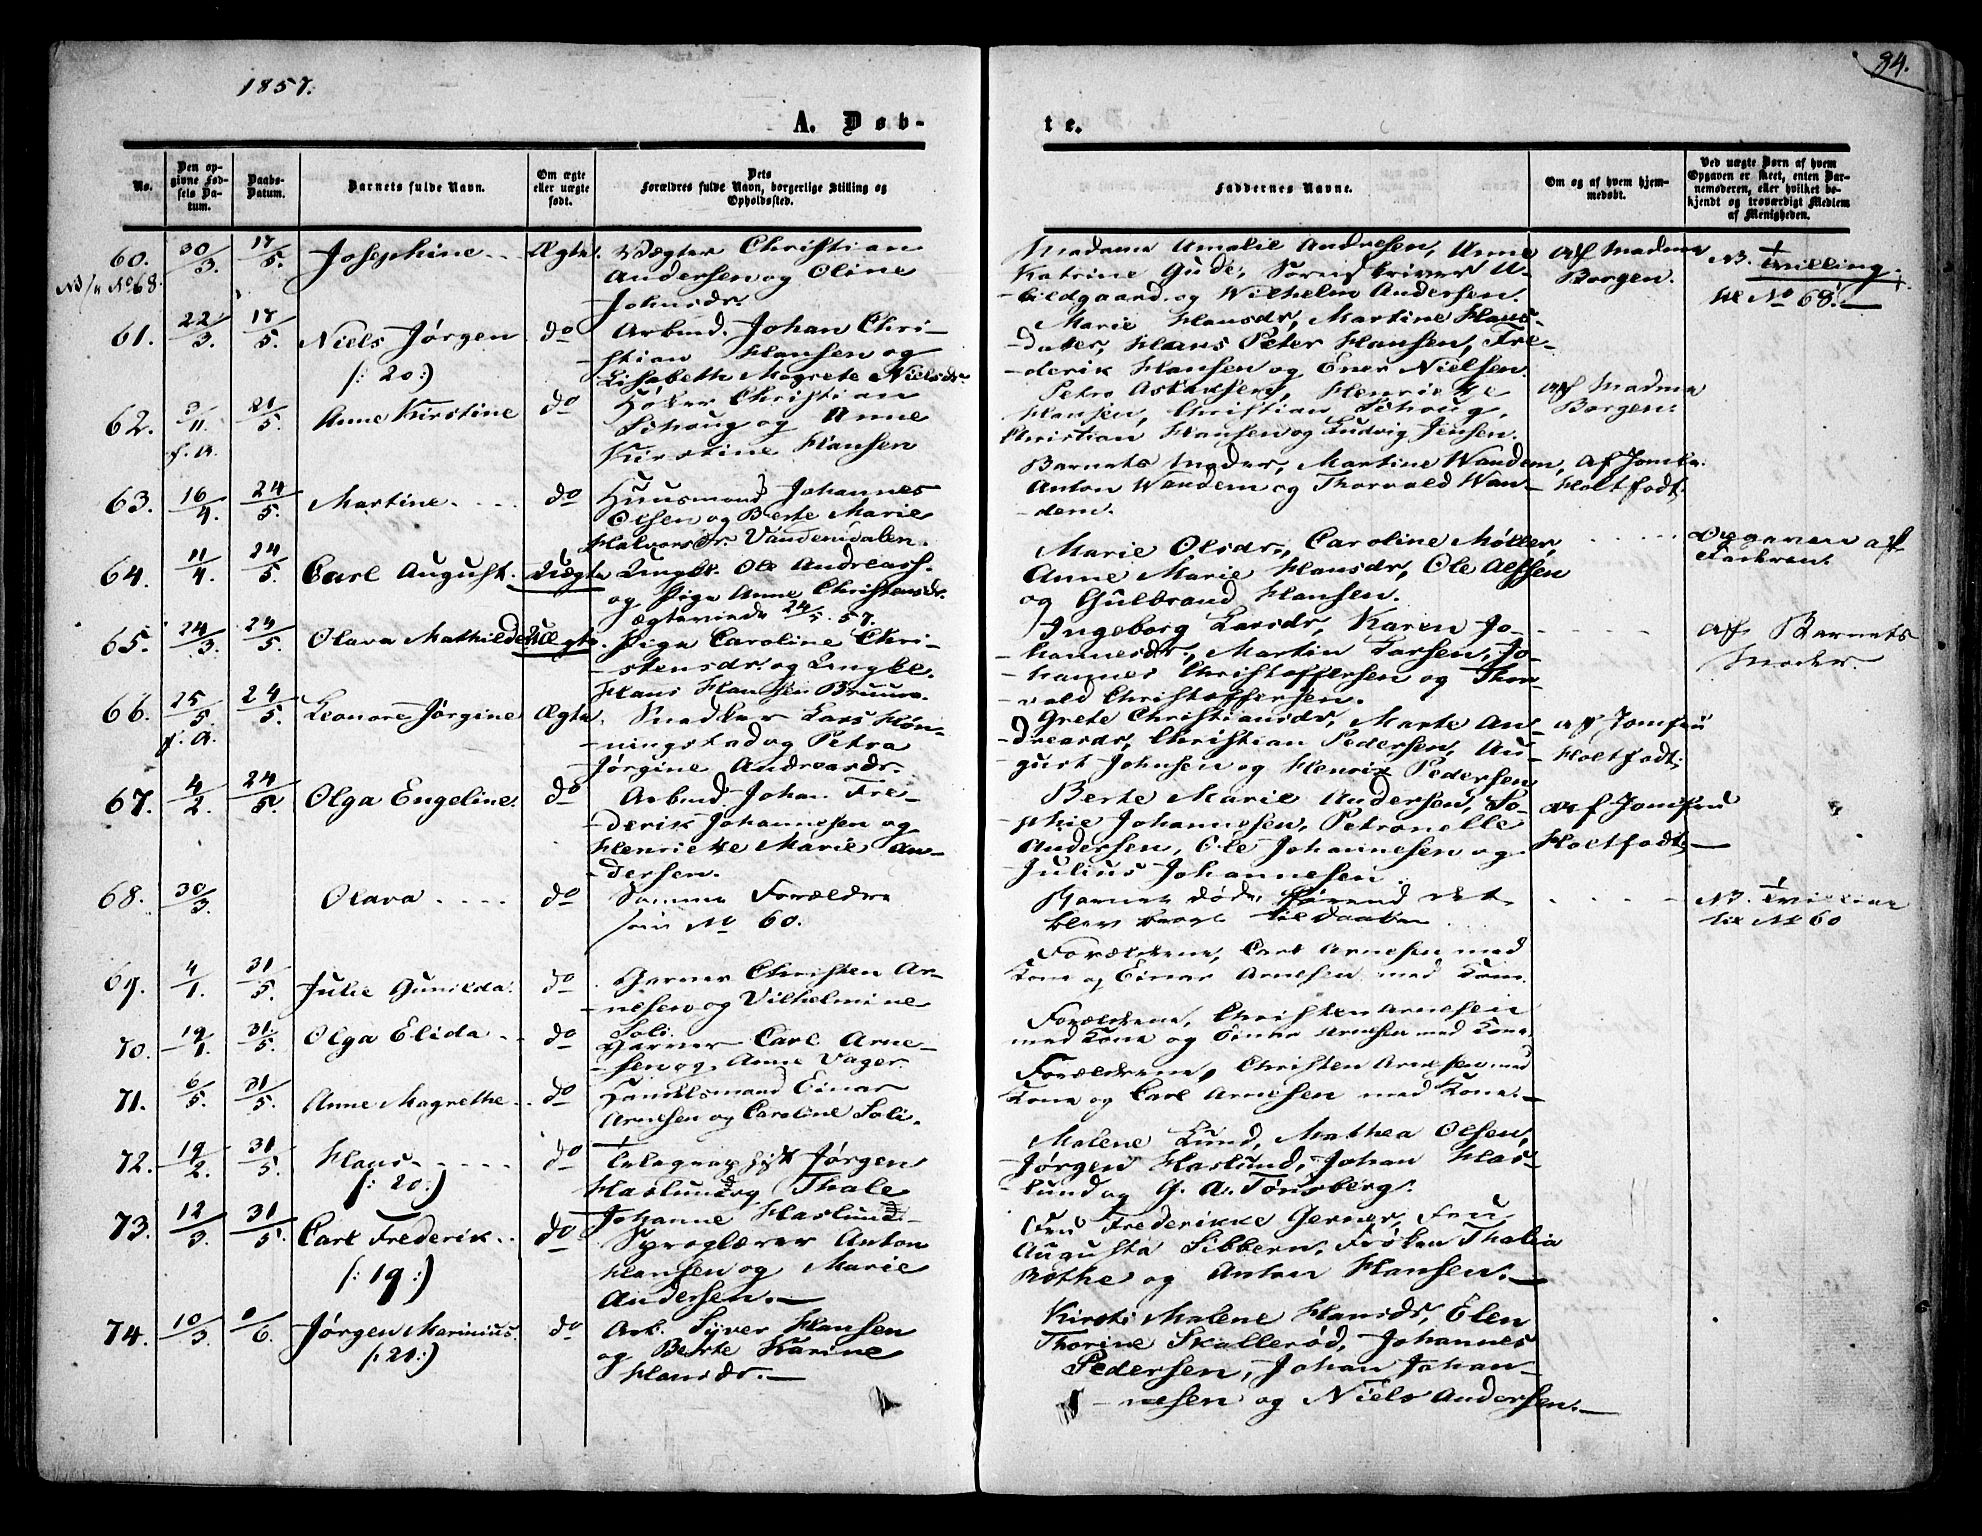 1857.
84.
A. Døb-
te.
No.
Den op-
givne Fød-
sels Da-
tum.
Daabs-
Datum.
Barnets fulde Navn.
Om ægte
eller uægte
født.
Dets
Forældres fulde Navn, borgerlige Stilling og
Opholdssted.
Faddernes Navne.
Om og af hvem hjem-
medøbt.
Ved uægte Børn af hvem
Opgaven er skeet, enten Bar-
nemoderen, eller hvilket be-
kjendt og troværdigt Medlem
af Menigheden.
60. 30/3. 17/5. Josephine Ægte. Vægter Christian
Andersen og Oline
Johnsdr
Madame Amalie Andresen, Anne
Katrine Gude, Sorenskriver A-
bildgaard og Wilhelm Andersen.
Af Madme
Borgen.
NB. 1 Tvilling
til No 68.
61. 22/3. 17/5. Niels Jørgen
(: 20:)
do Arbmd. Johan Chri-
stian Hansen og
Lisabeth Magrete Nielsdr.
Marie Hansdr, Martine Hans-
dater, Hans Peter Hansen, Fre-
derik Hansen og Ener Nielsen.
62. 3/11 f. A. 21/5. Anne Kirstine do Høker Christian
Schoug og Anne
Kirstine Hansen
Petra Hansen, Henriette
Hansen, Christian Schoug,
Christian Hansen og Ludvig Jensen.
Af Madme
Borgen.
63. 16/4. 24/5. Martine do Huusmand Johannes
Olsen og Berte Marie
Halvorsdr. Vandemdalen.
Barnets Moder, Martine Wandem,
Anton Wandem og Thorvald Wan-
dem.
Af Jomfr.
Holtfodt.
64. 11/4. 24/5. Carl August. Uægte Ungk. Ole Andreass.
og Pige Anne Christensdr.
Ægteviede 24/5 57.
Marie Olsdr., Caroline Møller,
Anne Marie Hansdr, Ole Alfsen
og Gulbrand Hansen.
Opgaven af
Faderen.
65. 24/3. 24/5. Olava Mathilde Uægte. Pige Caroline Chri-
stensdr og Ungk.
Hans Hansen Bruun.
Ingeborg Larsdr, Karen Jo-
hannesdr., Martin Larsen, Jo-
hannes Christoffersen og Thor-
vald Christoffersen.
Af Barnets
Moder.
66. 25/5. f. A. 24/5. Leonore Jørgine Ægte. Snedker Lars Høn-
ningstad og Petra
Jørgine Andreasdr.
Grete Christiansdr, Marte An-
dreasdr, Christian Pedersen, Au-
gust Johnsen og Henrik Pedersen
Af Jomfru
Holtfodt.
67. 4/2. 24/5. Olga Engeline. do Arbmd. Johan Fre-
derik Johannesen og
Henriette Marie An-
dersen.
Berte Marie Andersen, So-
phie Johannesen, Petronelle
Andersen, Ole Johannesen og
Julius Johannesen
Af Jomfru
Holtfodt.
68. 30/3. Olava do Samme Forældre
som No 60.
Barnet døde førend det
blev bragt til Daaben
NB. 1 Tvilling
til No 60
69. 4/1. 31/5. Julie Gunilda. do Garver Christen Ar-
nesen og Vilhelmine
Soli.
Forældrene, Carl Arnesen med
Kone og Einar Arnesen med Kone.
70. 19/1. 31/5. Olga Elida do Garver Carl Arne-
sen og Anne Vager.
Forældrene, Christen Arnesen
med Kone og Einar Arnesen med Kone.
71. 6/5. 31/5. Anne Magrethe do Handelsmand Einar
Arnesen og Caroline Soli.
Forældrene, Christen Arnesen med
Kone og Carl Arnesen med Kone.
72. 19/2. 31/5. Hans
(: 20:)
do Telegraphist Jørgen
Haslund og Thale
Johanne Haslund
Malene Lund, Mathea Olsen,
Jørgen Haslund, Johan Has-
lund og G. A. Tønsberg.
73. 12/3. 31/5. Carl Frederik
(: 19:)
do Sproglærer Anton
Hansen og Marie
Andersen.
Fru Frederikke Gerner, Fru
Augusta Sibbern, Frøken Thalia
Rothe og Anton Hansen.
74. 10/3. /6. Jørgen Marinius.
(: 20:)
do Arb. Syver Hansen
og Berte Karine
Hansdr.
Kirsti Malene Hansdr, Elen
Thorine Skallerød, Johannes
Pedersen, Johan Johan-
nesen og Niels Andersen.